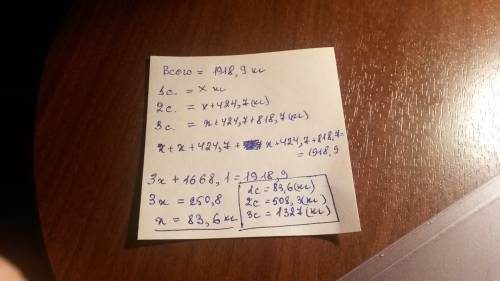 Всего = 1918,9 кг
1с. = x кг
2с. = x+424,7(кг)
3с. = x+424,7+818,7(кг)
x+x+424,7+ x+424,7+818,7=
=1918,9
3x+1668,1=1918,9
3x=250,8
x=83,6 кг
1с=83,6(кг)
2с=508,3(кг)
3с=1327(кг)